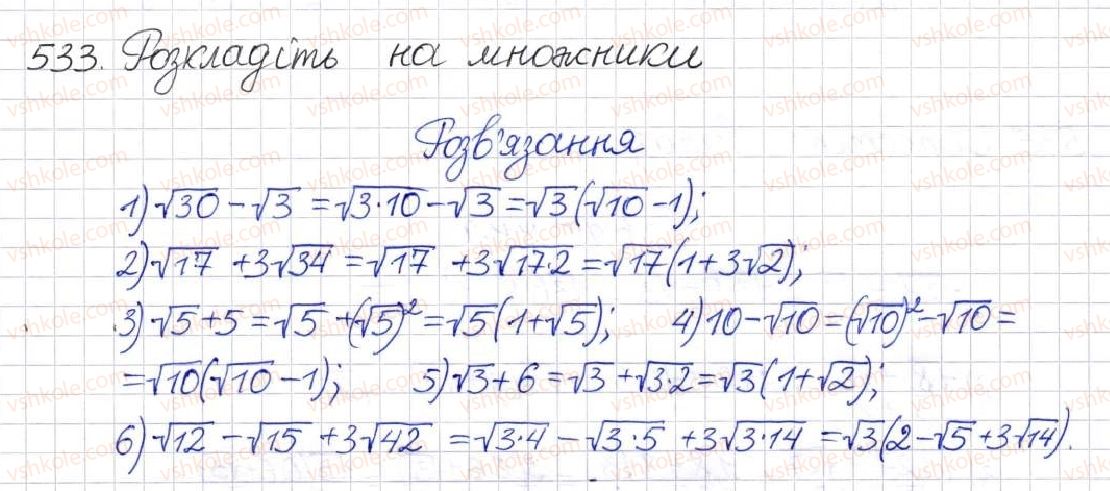 533. Розкладіть на множники
Розв'язання
1) √30 - √3 = √3·10 - √3 = √3(√10 - 1);
2) √17 + 3√34 = √17 + 3√17·2 = √17(1 + 3√2);
3) √5 + 5 = √5 + (√5)² = √5(1 + √5); 4) 10 - √10 = (√10)² - √10 =
= √10(√10 - 1); 5) √3 + 6 = √3 + √3·2 = √3(1 + √2);
6) √12 - √15 + 3√42 = √3·4 - √3·5 + 3√3·14 = √3(2 - √5 + 3√14).